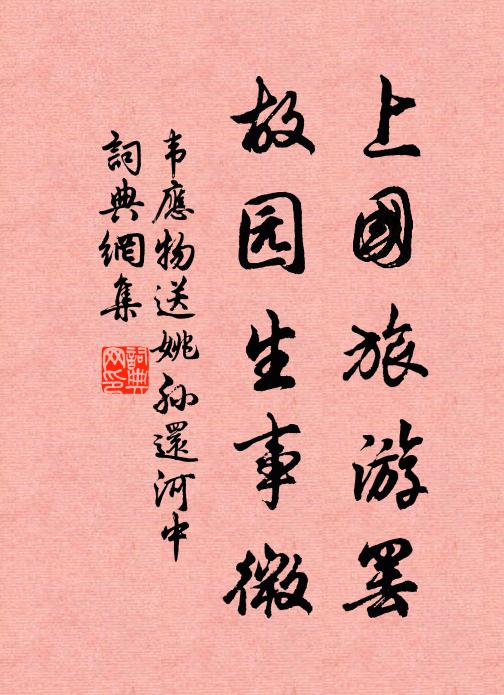 上國旅游罢
故园生事微
韦應物送姚孙還河中
詞典網集
詞典網印